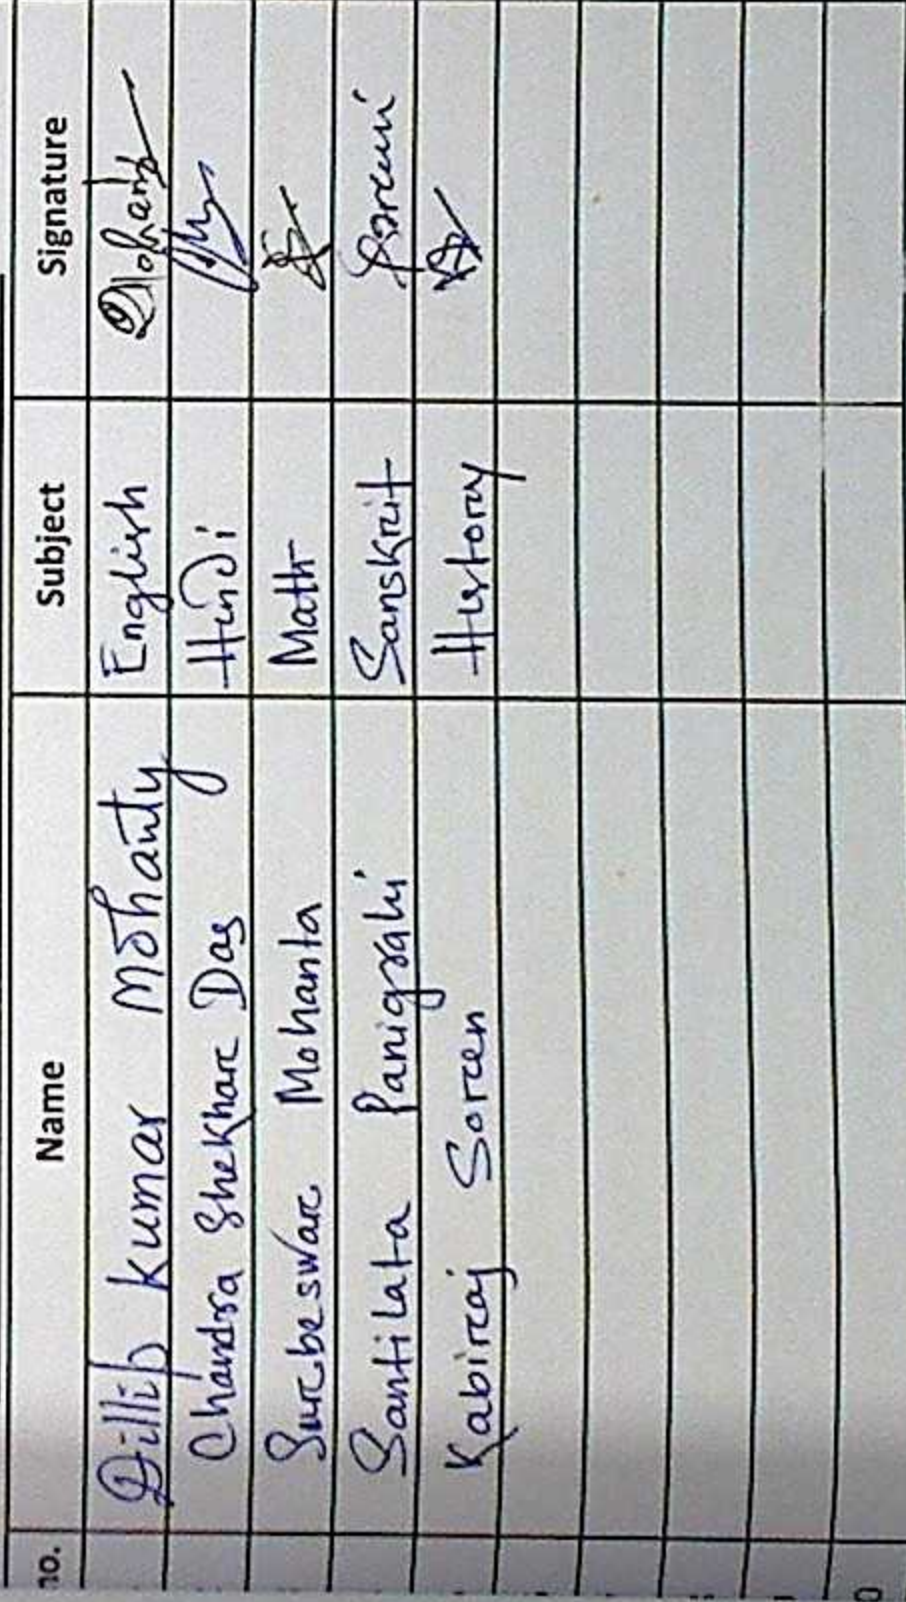 no. Name Subject Signature
Dillip Kumar Mohanty English
Chandra Shekhar Das Hindi
Surbeswar Mohanta Math
Santilata Panigrahi Sanskrit
Kabiraj Soren History
0